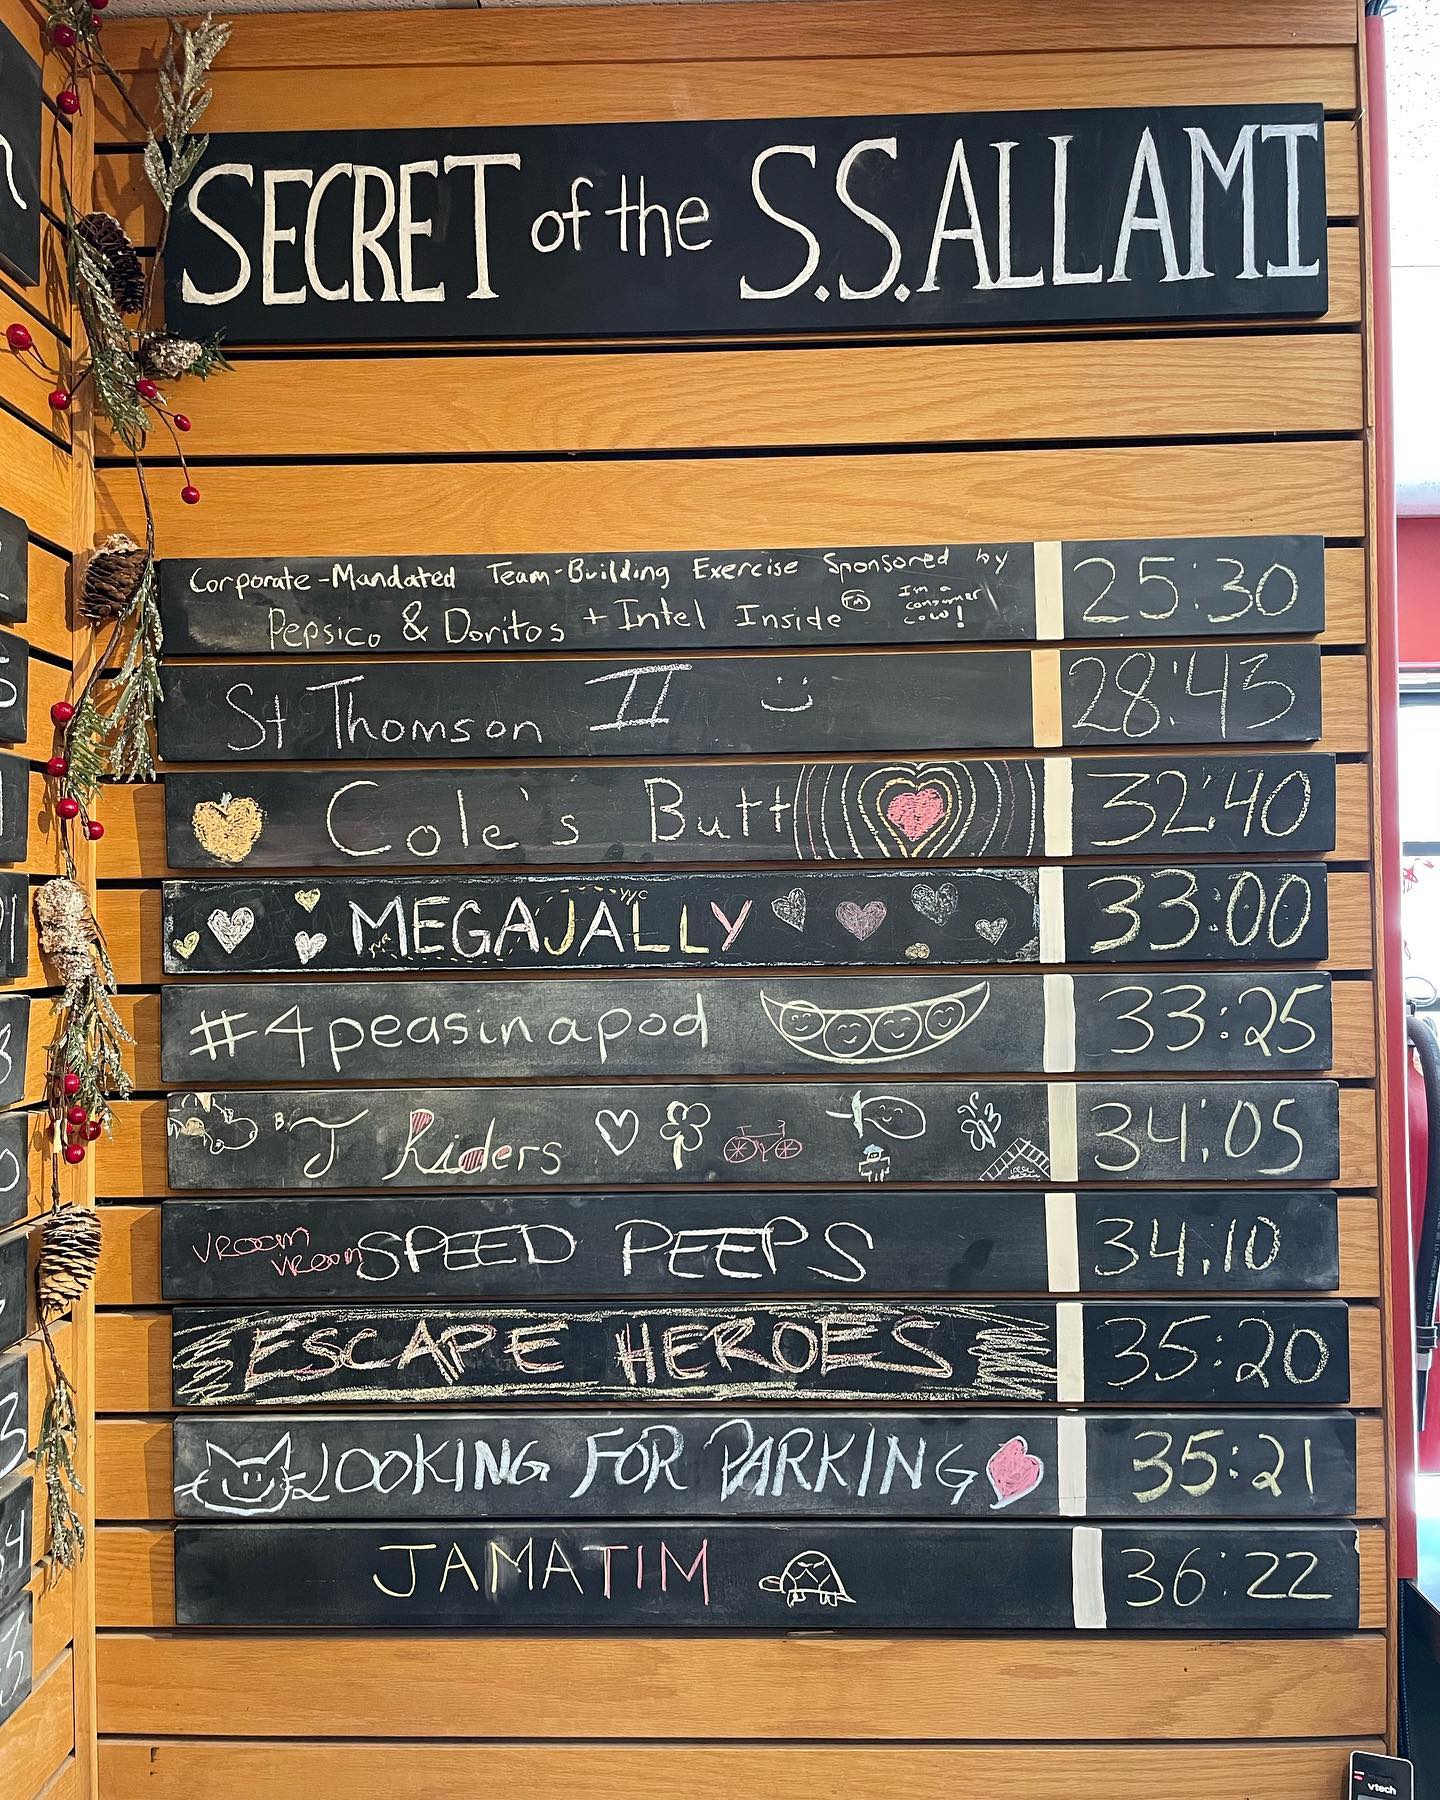 SECRET of the S.S.ALLAMI
Corporate-Mandated Team-Building Exercise Sponsored by
Pepsico & Doritos + Intel Inside TM I'm a consumer cow!
25:30
St Thomson II
28:43
Cole's Butt
32:40
MEGAJALLY
33:00
#4peasinapod
33:25
T Riders
34:05
VROOM
VROOM SPEED PEEPS
34:10
ESCAPE HEROES
35:20
LOOKING FOR PARKING
35:21
JAMATIM
36:22
vtech